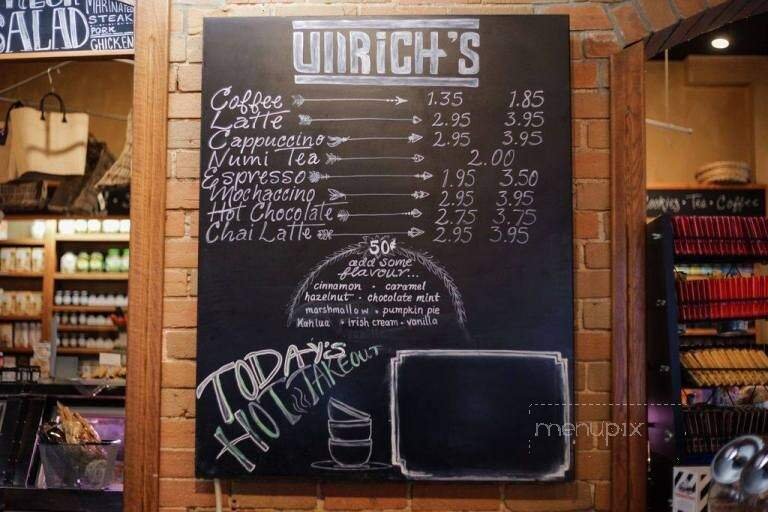 SALAD
MARINATED
STEAK
PORK
CHICKEN
ULLRICH'S
Coffee 1.35 1.85
Latte 2.95 3.95
Cappuccino 2.95 3.95
Numi Tea 2.00
Espresso 1.95 3.50
Mochaccino 2.95 3.95
Hot Chocolate 2.75 3.75
Chai Latte 2.95 3.95
50¢
add some
flavour...
cinnamon • caramel
hazelnut • chocolate mint
marshmallow • pumpkin pie
Kahlua • irish cream • vanilla
TODAY'S
HOT TAKEOUT
Cookies • Tea • Coffee
menupix